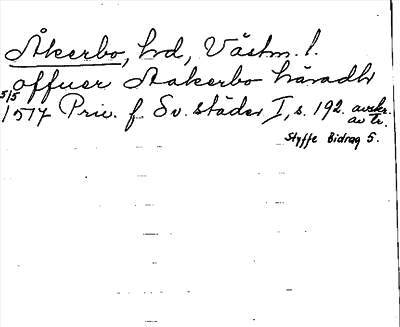 Åkerbo, hd, Västm. l.
offuer Aakerbo häradh
5/5 1517 Priv. f Sv. städer I, s. 192. avskr. av tr.
Styffe Bidrag 5.